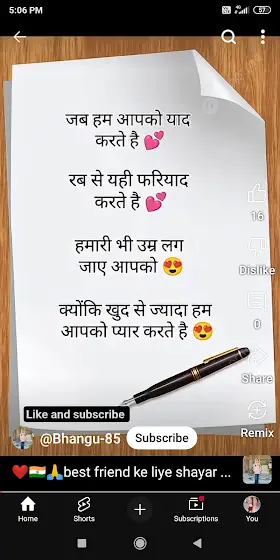 5:06 PM
57
जब हम आपको याद
करते है 💕
रब से यही फरियाद
करते है 💕
हमारी भी उम्र लग
जाए आपको 😍
क्योंकि खुद से ज्यादा हम
आपको प्यार करते है 😍
16
Dislike
0
Share
Remix
Like and subscribe
@Bhangu-85
Subscribe
❤️🇮🇳🙏best friend ke liye shayar ...
Home
Shorts
Subscriptions
You